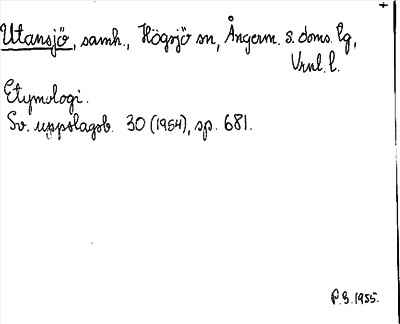 Utansjö, samh., Högsjö sn, Ångerm. s. doms. lg,
Vrnl. l.
Etymologi.
Sv. uppslagsb. 30 (1954), sp. 681.
1955.